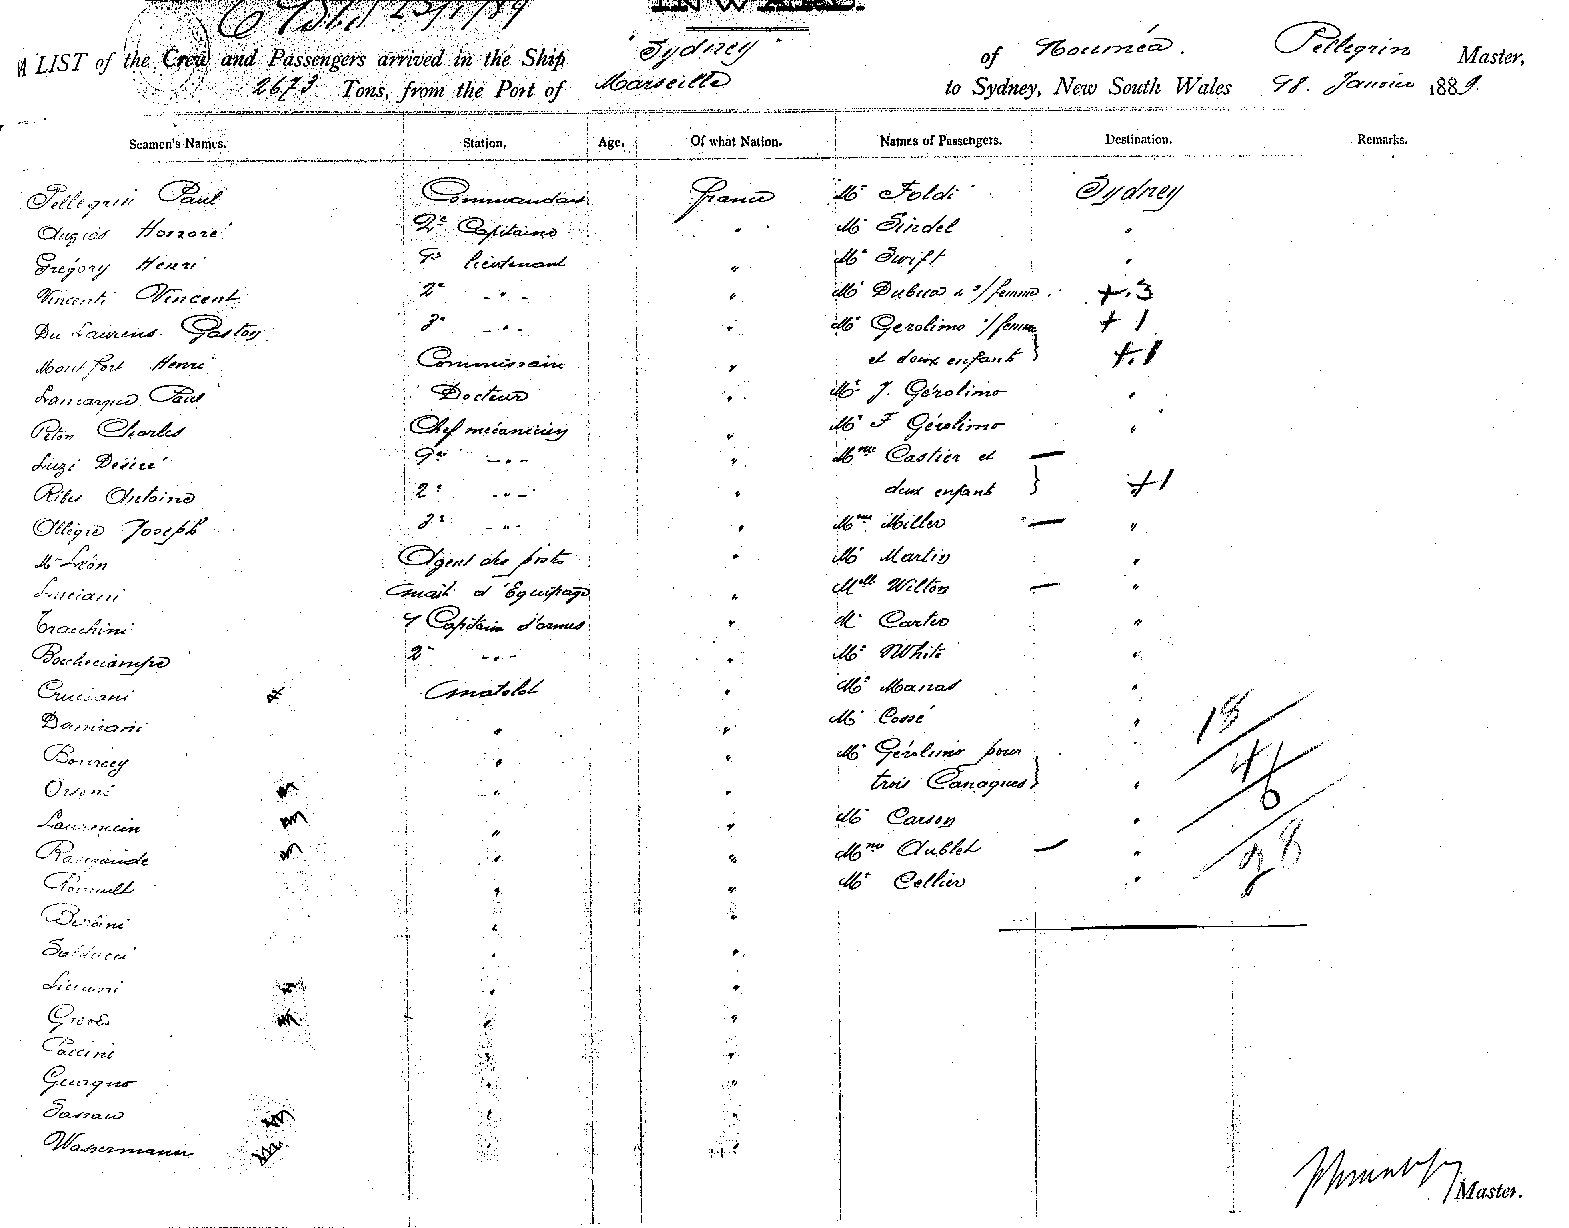 INWARD.
A LIST of the Crew and Passengers arrived in the Ship "Sydney" of Nouméa. Pellegrin Master,
2673 Tons, from the Port of Marseille to Sydney, New South Wales 18. Janvier 1889.
Seamen's Names. Station. Age. Of what Nation. Names of Passengers. Destination. Remarks.
Pellegrin Paul Commandant France Mr Foldi Sydney
Augias Honoré 2e Capitaine " Mr Sindel "
Grégory Henri 1er lieutenant " Mr Swift "
Vincenti Vincent 2e -"- " Mr Dubua & s/femme. +.3
Du Laurens Gaston 3e -"- " Mr Gerolimo s/femme + 1
Montfort Henri Commissaire " et deux enfants } +.1
Lamarque Paul Docteur " Mr J. Gérolimo "
Péton Charles Chef mécanicien " Mr F Gérolimo "
Luzi Désiré 1er -"- " Mme Castier et —
Ribes Antoine 2e -"- " deux enfants } +1
Ollégre Joseph 3e -"- " Mme Miller — "
Mr Léon Agent des posts " Mr Martin "
Luciani mait. d'Equipage " Mell Wilton — "
Tracchini 1 Capitain d'armes " Mr Carter "
Bocheciampe 2e -"- " Mr White "
Cruciani matelot " Mr Manas "
Damiani " " Mr Cossé "
Bourcey " " Mr Gérolimo pour
Orsoni " " trois Canaques } "
Laurencin " " Mr Carson "
Raimonde " " Mme Aublet — "
" " Mr Cellier "
" "
" "
" "
" "
Paccini " "
" "
" "
Wassermann " "
18
4
6
28
Master.